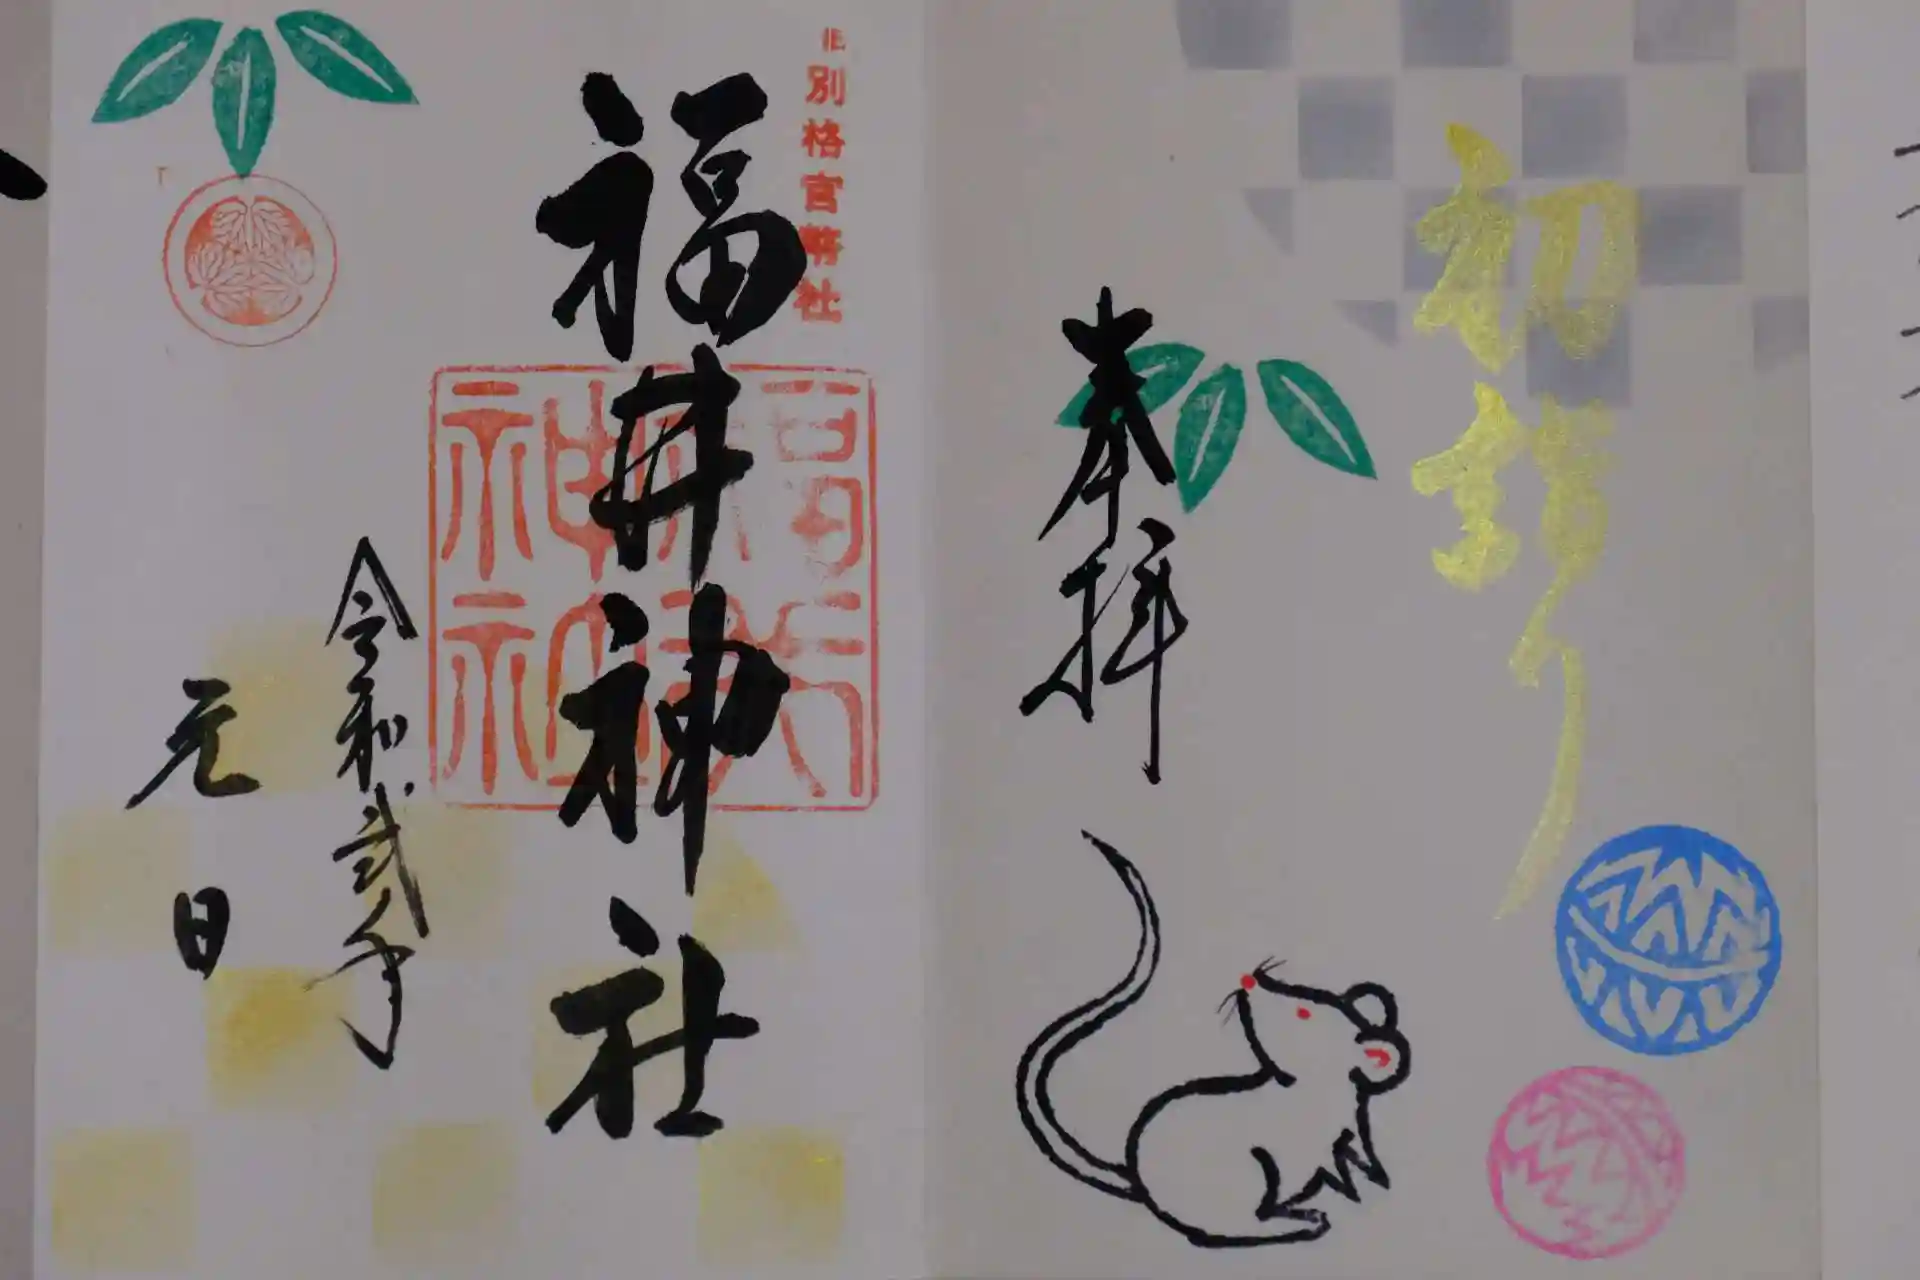 初詣り
奉拝
旧別格官幣社
福井神社
令和弐年
元日